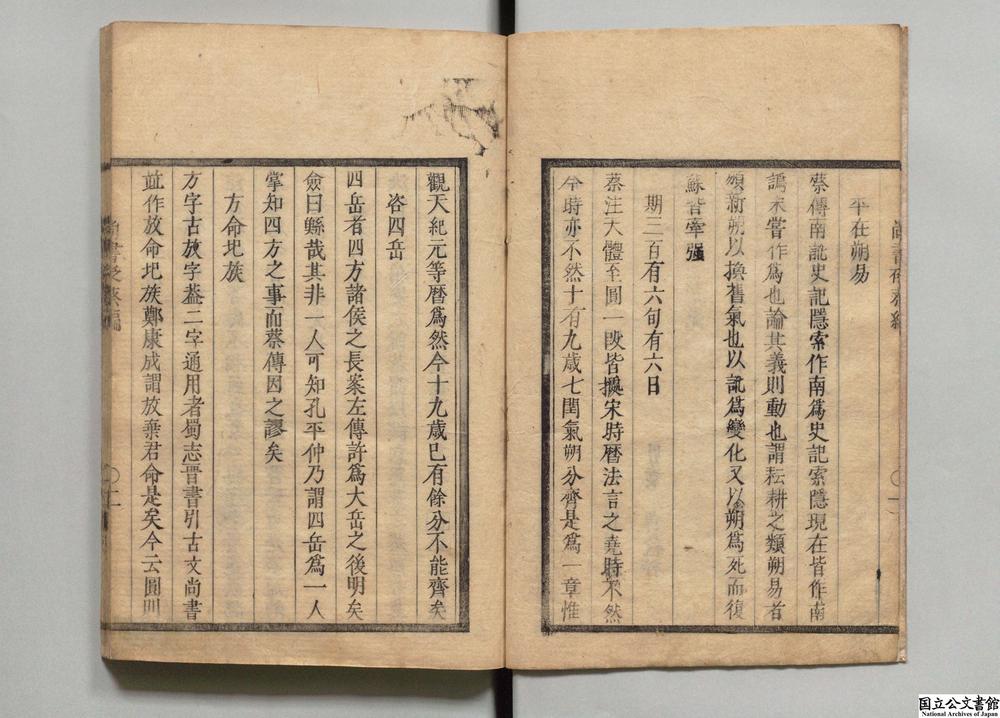 平在朔易
蔡傳南訛史記隱索作南爲史記索隱現在皆作南
譌未嘗作爲也論其義則動也謂耘耕之類朔易者
須新朔以換舊氣也以訛爲變化又以朔爲死而復
蘇皆牽强
期三百有六旬有六日
蔡注大體至圓一段皆據宋時曆法言之堯時不然
今時亦不然十有九歲七閏氣朔分齊是爲一章惟
觀天紀元等曆爲然今十九歲已有餘分不能齊矣
咨四岳
四岳者四方諸侯之長案左傳許爲大岳之後明矣
僉曰鯀哉其非一人可知孔平仲乃謂四岳爲一人
掌知四方之事而蔡傳因之謬矣
方命圮族
方字古放字葢二字通用者蜀志晋書引古文尚書
並作放命圮族鄭康成謂放棄君命是矣今云圓則
二
国立公文書館
National Archives of Japan